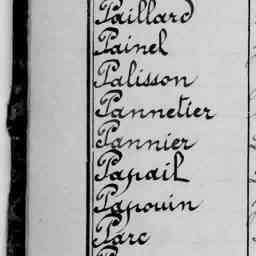 Paillard
Painel
Palisson
Pannetier
Pannier
Papail
Papouin
Parc